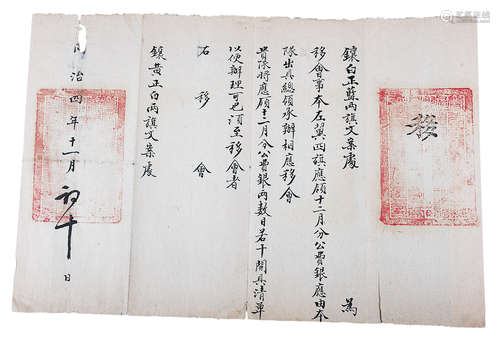 移
鑲白正藍兩旗文案處 為
移會事本左翼四旗應領十二月分公費銀應由本
隊出具總領承辦相應移會
貴隊將應領十二月分公費銀兩數目若干開具清單
以便辦理可也須至移會者
右移會
鑲黃正白兩旗文案處
治四年十一月初十日